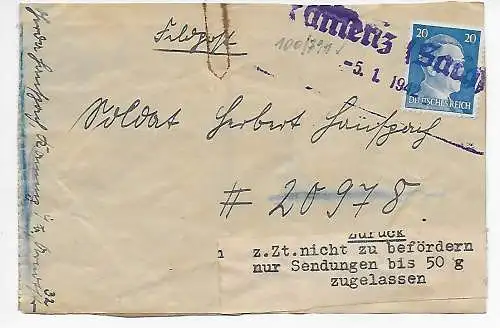 Feldpost
100/791
Kamenz (Sachs
-5. 1. 1942
20 20
DEUTSCHES REICH
Soldat Herbert
# 20978.
Zurück
z.Zt.nicht zu befördern
nur Sendungen bis 50 g
zugelassen
32